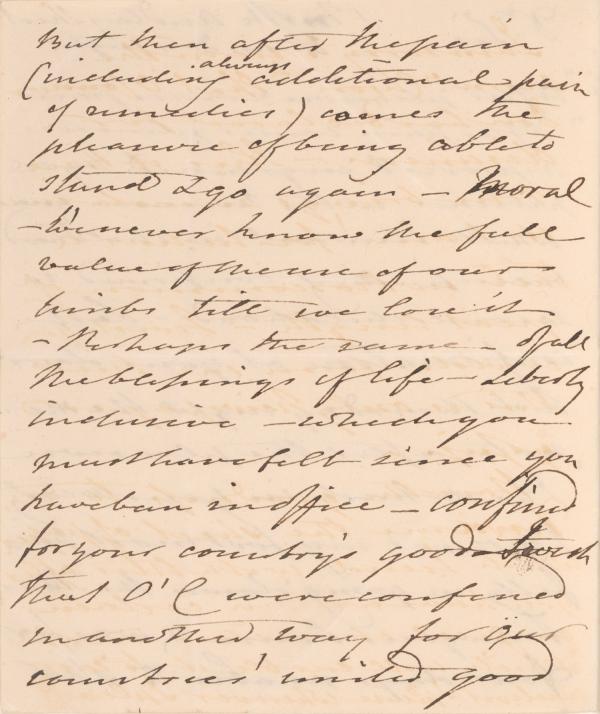 But then after the pain
(including always additional pain
of remedies) comes the
pleasure of being able to
stand & go again – Moral
– We never know the full
value of the use of our
limbs till we lose it
– Perhaps the same – of all
the blessings of life – Liberty
inclusive – which you
must have felt since you
have been in office – confined
for your country's good – I wish
that O'C were confined
in another way for our
countries' united good